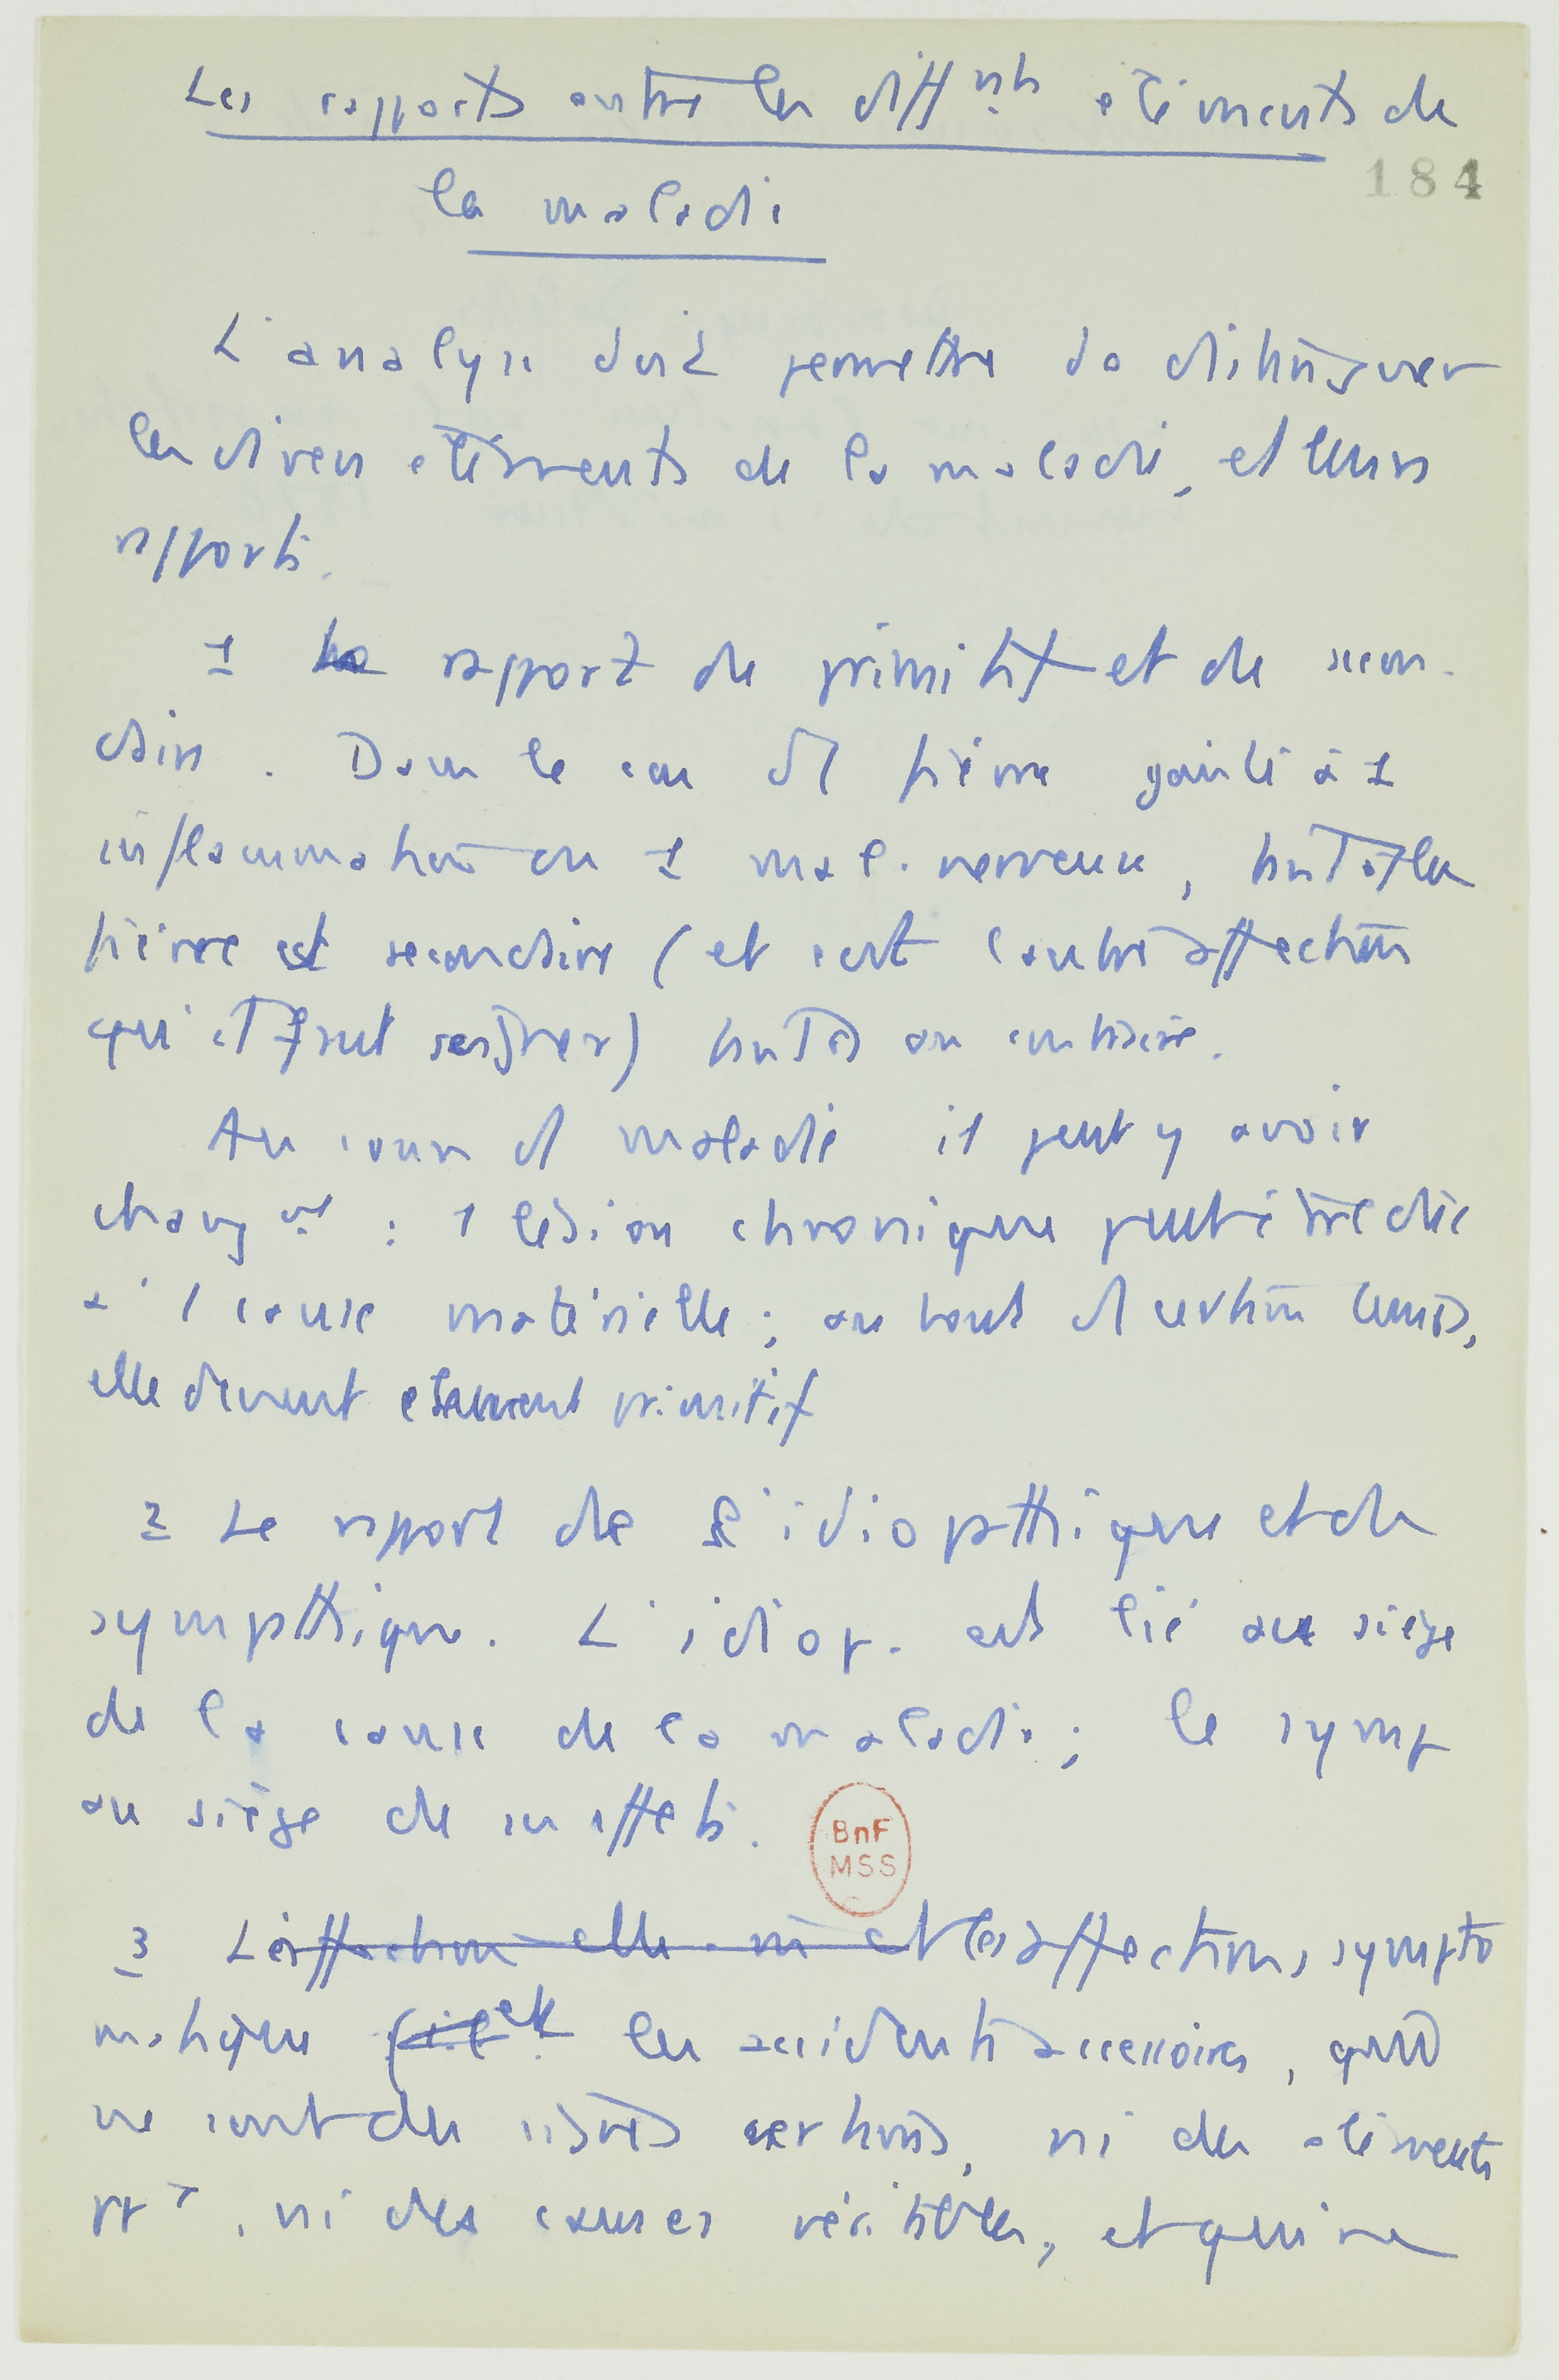 Les rapports entre les diffnts éléments de
184
la maladie
L'analyse doit permettre de distinguer
les divers éléments de la maladie, et leurs
rapports.
1 rapport de primitif et de secon-
daire. Dans le cas d' fièvre jointe à 1
inflammation ou 1 mal. nerveuse, tantôt la
fièvre est secondaire (et c'est l'autre affection
qu'il faut soigner) tantôt au contraire.
Au cours d' maladie il peut y avoir
changmt : 1 lésion chronique peut être due
à 1 cause matérielle ; au bout d'un certain temps,
elle devient élément primitif
2 Le rapport de l'idiopathique et du
sympathique. L'idiop. est lié au siège
de la cause de la maladie ; le symp
au siège de ses effets.
BnF
MSS
3 L'affection elle-m et les affections sympto
matiques et les accidents accessoires, qui
ne sont des certains, ni des éléments
ppx, ni des causes véritables, et qui ne